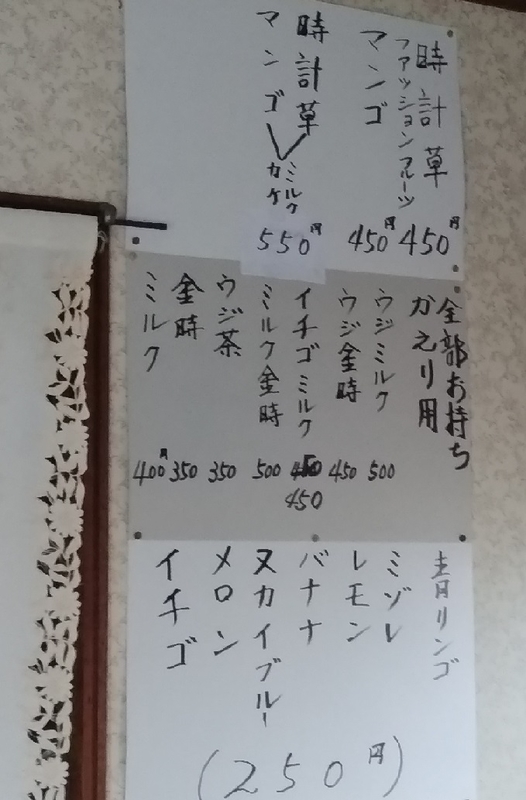 時計草
ファッションフルーツ
450
マンゴ
450円
時計草
マンゴ
ミルク
カケ
550円
全部お持ち
かえり用
ウジミルク
500
ウジ金時
450
イチゴミルク
450
ミルク金時
500
ウジ茶
350
金時
350
ミルク
400円
青リンゴ
ミゾレ
レモン
バナナ
ヌカイブルー
メロン
イチゴ
(250円)